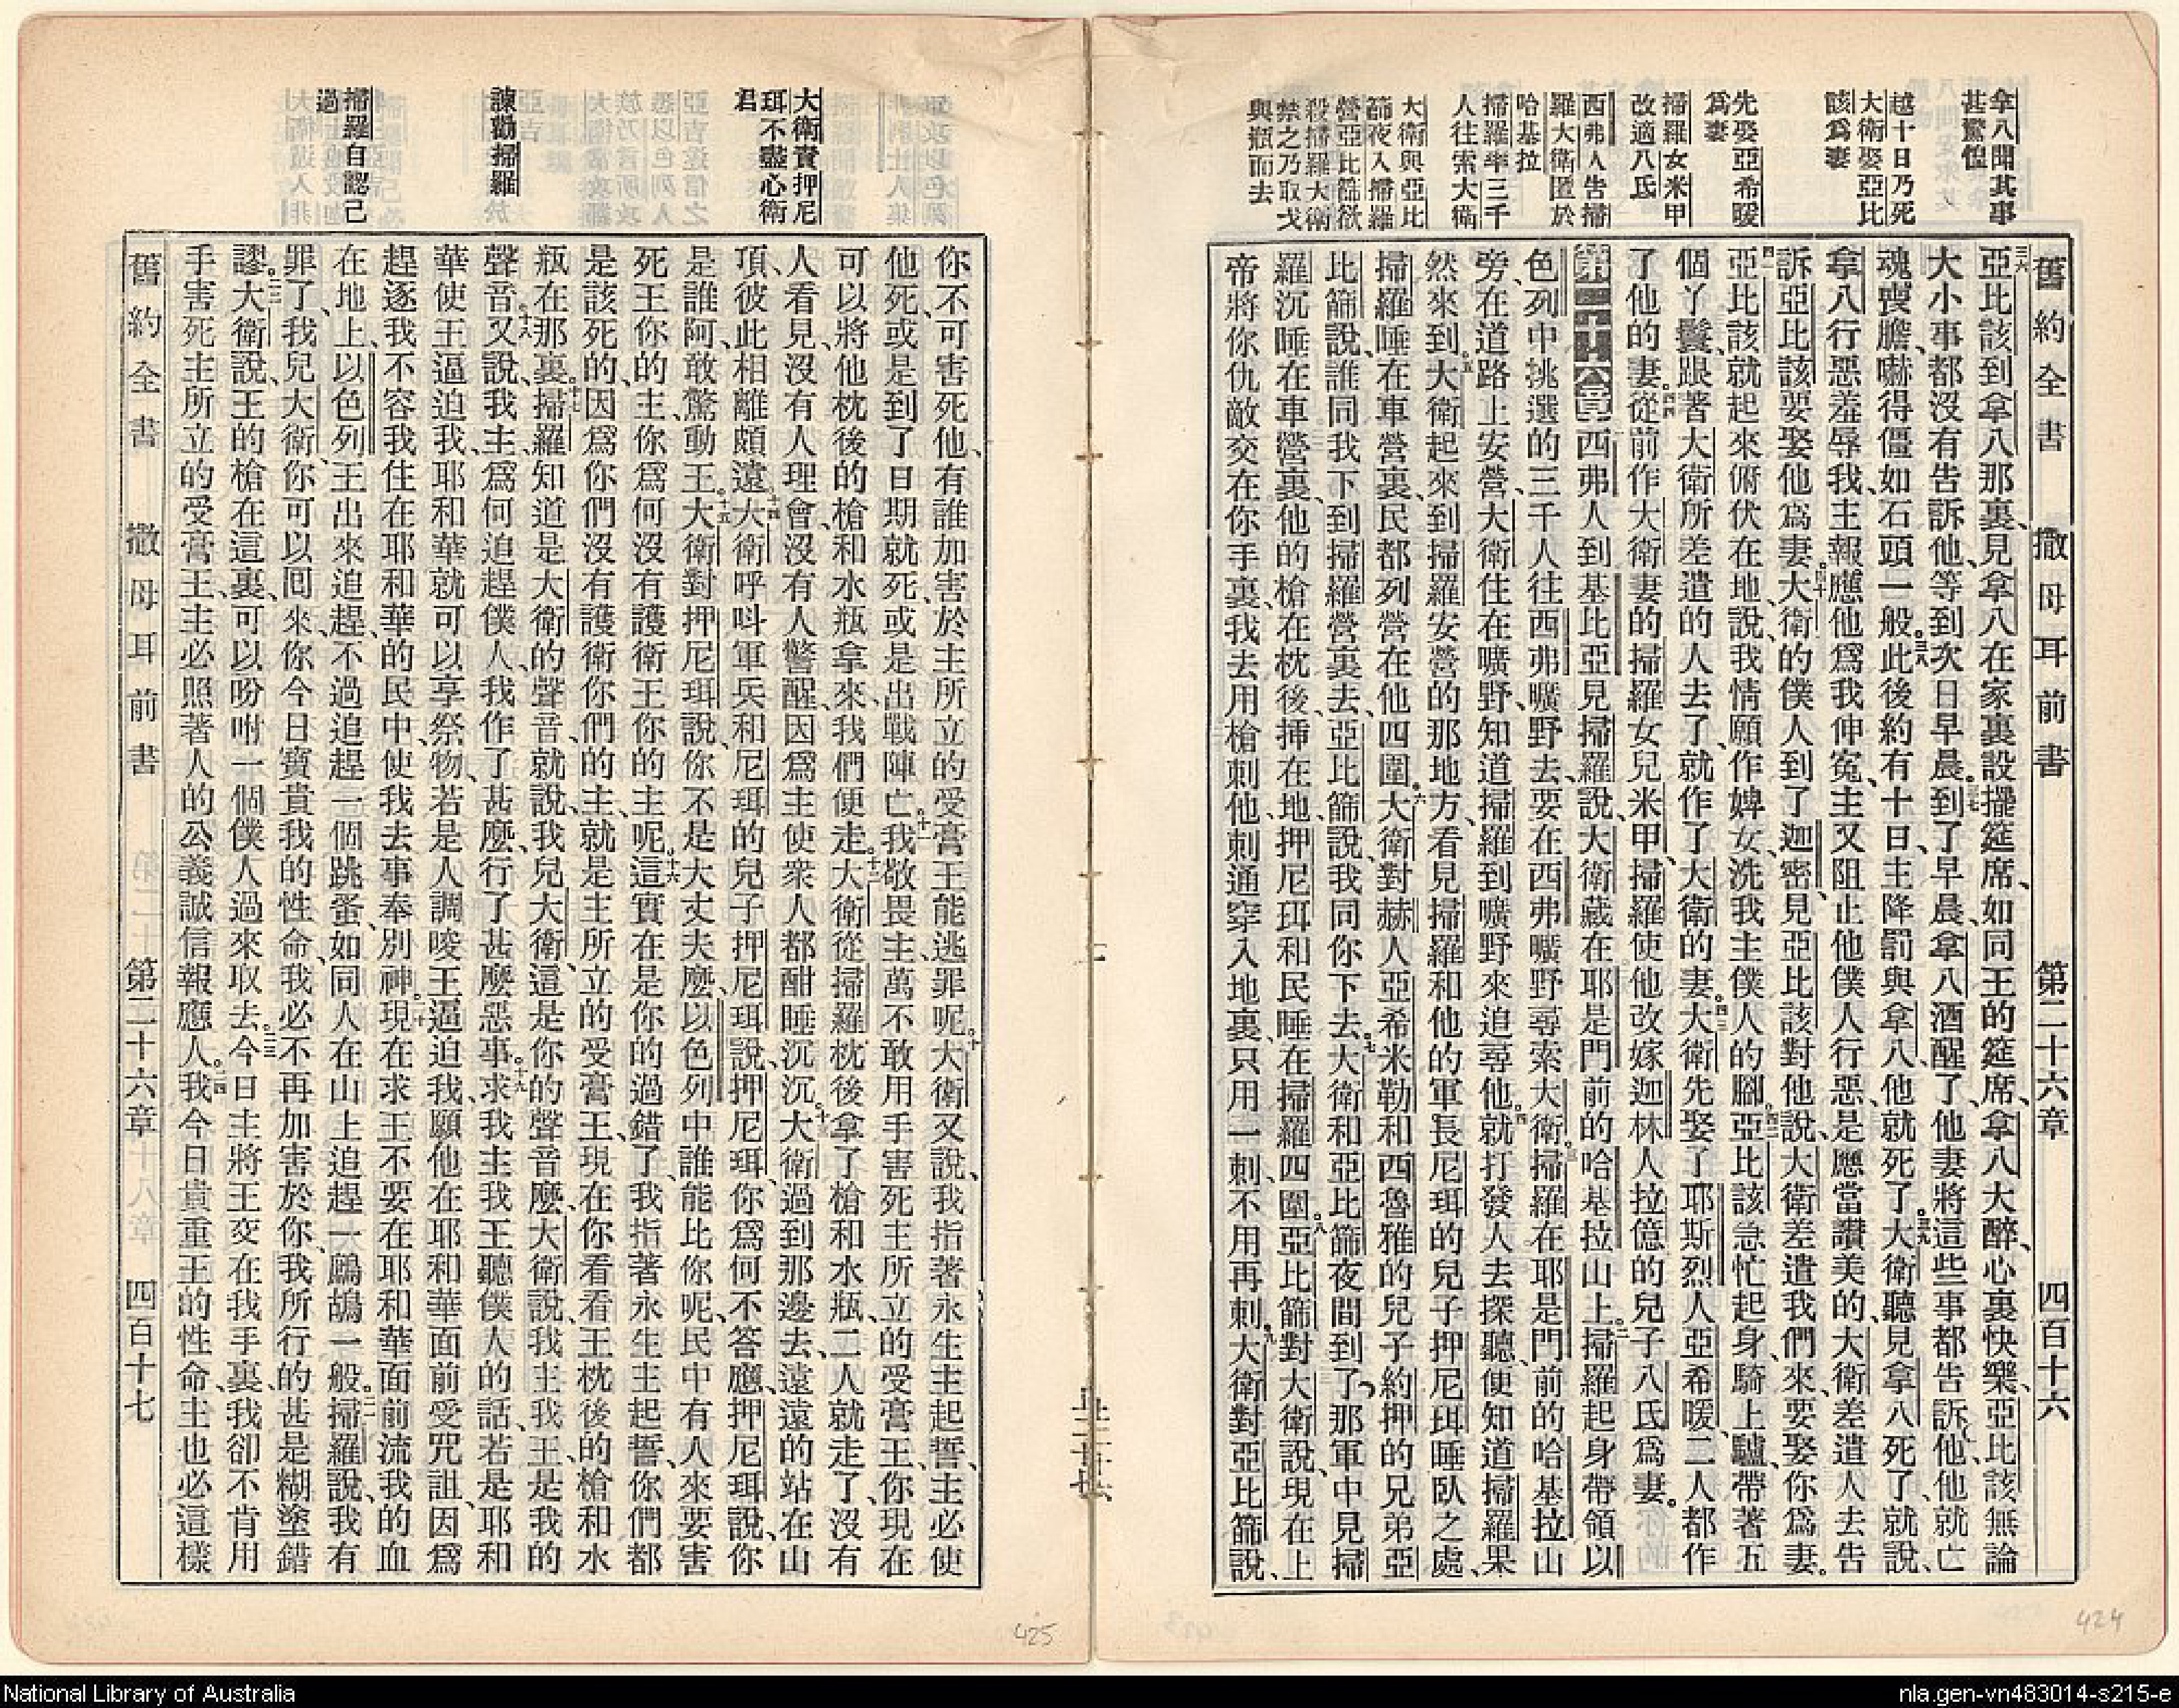 舊約全書　撒母耳前書　第二十六章　四百十六
拿八聞其事
甚驚惶
越十日乃死
大衛娶亞比
該爲妻
先娶亞希暖
爲妻
掃羅女米甲
改適八氏
西弗人告掃
羅大衛匿於
哈基拉
掃羅率三千
人往索大衛
大衛與亞比
篩夜入掃羅
營亞比篩欲
殺掃羅大衛
禁之乃取戈
與瓶而去
三六亞比該到拿八那裏、見拿八在家裏設擺筵席、如同王的筵席、拿八大醉、心裏快樂、亞比該無論
大小事都沒有告訴他、等到次日早晨。三七到了早晨、拿八酒醒了、他妻將這些事都告訴他、他就亡
魂喪膽、嚇得僵如石頭一般。三八此後約有十日、主降罰與拿八、他就死了。三九大衛聽見拿八死了、就說、
拿八行惡羞辱我、主報應他爲我伸冤、主又阻止他僕人行惡、是應當讚美的、大衛差遣人去告
訴亞比該要娶他爲妻。四十大衛的僕人到了迦密、見亞比該對他說、大衛差遣我們來、要娶你爲妻。
四一亞比該就起來俯伏在地、說、我情願作婢女、洗我主僕人的腳。四二亞比該急忙起身、騎上驢、帶著五
個丫鬟、跟著大衛所差遣的人去了、就作了大衛的妻。四三大衛先娶了耶斯烈人亞希暖、二人都作
了他的妻。四四從前作大衛妻的掃羅女兒米甲、掃羅使他改嫁迦林人拉億的兒子八氏爲妻。
第二十六章　西弗人到基比亞見掃羅說、大衛藏在耶是門前的哈基拉山上。二掃羅起身帶領以
色列中挑選的三千人、往西弗曠野去、要在西弗曠野尋索大衛。三掃羅在耶是門前的哈基拉山
旁、在道路上安營、大衛住在曠野、知道掃羅到曠野來追尋他。四就打發人去探聽、便知道掃羅果
然來到。五大衛起來到掃羅安營的那地方、看見掃羅和他的軍長尼珥的兒子押尼珥睡臥之處、
掃羅睡在車營裏、民都列營在他四圍。六大衛對赫人亞希米勒和西魯雅的兒子約押的兄弟亞
比篩說、誰同我下到掃羅營裏去、亞比篩說、我同你下去。七大衛和亞比篩夜間到了那軍中、見掃
羅沉睡在車營裏、他的槍在枕後、揷在地、押尼珥和民睡在掃羅四圍。八亞比篩對大衛說、現在上
帝將你仇敵交在你手裏、我去用槍刺他、刺通穿入地裏、只用一刺、不用再刺。九大衛對亞比篩說、
大衛責押尼
珥不盡心衛
君
諫勸掃羅
掃羅自認己
過
你不可害死他、有誰加害於主所立的受膏王能逃罪呢。十大衛又說、我指著永生主起誓、主必使
他死、或是到了日期就死、或是出戰陣亡。十一我敬畏主、萬不敢用手害死主所立的受膏王、你現在
可以將他枕後的槍和水瓶拿來、我們便走。十二大衛從掃羅枕後拿了槍和水瓶、二人就走了、沒有
人看見、沒有人理會、沒有人警醒、因爲主使衆人都酣睡沉沉。十三大衛過到那邊去、遠遠的站在山
頂、彼此相離頗遠。十四大衛呼呌軍兵和尼珥的兒子押尼珥說、押尼珥、你爲何不答應、押尼珥說、你
是誰阿、敢驚動王。十五大衛對押尼珥說、你不是大丈夫麽、以色列中誰能比你呢、民中有人來要害
死王你的主、你爲何沒有護衛王你的主呢。十六這實在是你的過錯了、我指著永生主起誓、你們都
是該死的、因爲你們沒有護衛你們的主、就是主所立的受膏王、現在你看看王枕後的槍和水
瓶在那裏。十七掃羅知道是大衛的聲音、就說、我兒大衛、這是你的聲音麽、大衛說、我主我王、是我的
聲音。十八又說、我主爲何追趕僕人、我作了甚麽、行了甚麽惡事。十九求我主我王聽僕人的話、若是耶和
華使王逼迫我、耶和華就可以享祭物、若是人調唆王逼迫我、願他在耶和華面前受咒詛、因爲
趕逐我不容我住在耶和華的民中、使我去事奉別神。二十現在求王不要在耶和華面前流我的血
在地上、以色列王出來追趕、不過追趕一個跳蚤、如同人在山上追趕一鷓鴣一般。二一掃羅說、我有
罪了、我兒大衛、你可以囘來、你今日寶貴我的性命、我必不再加害於你、我所行的甚是糊塗錯
謬。二二大衛說、王的槍在這裏、可以吩咐一個僕人過來取去。二三今日主將王交在我手裏、我卻不肯用
手害死主所立的受膏王、主必照著人的公義誠信報應人。二四我今日貴重王的性命、主也必這樣
舊約全書　撒母耳前書　第二十六章　四百十七
424
425
National Library of Australia
nla.gen-vn483014-s215-e